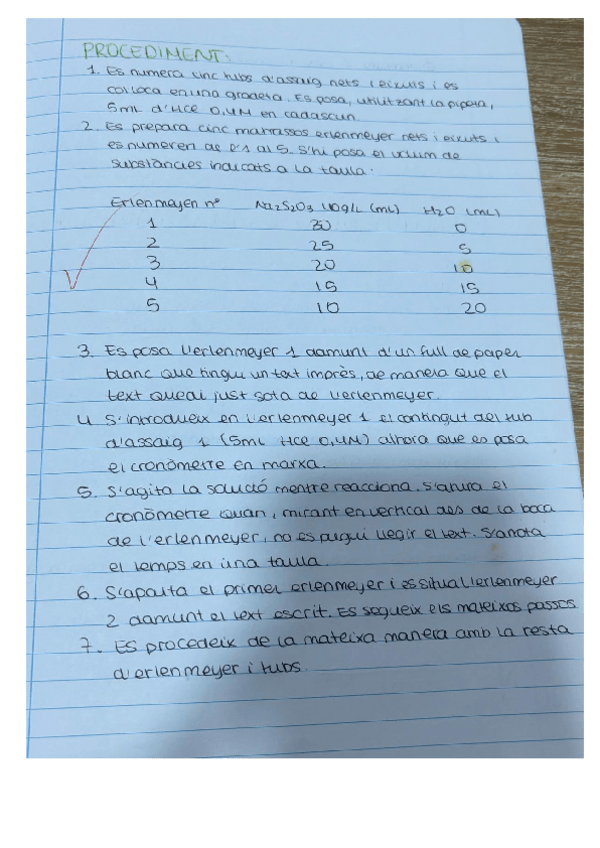 PROCEDIMENT:
1. Es numera cinc tubs d'assaig nets i eixuts i es
col·loca en una gradeta. Es posa, utilitzant la pipeta,
5ml d'HCl 0,4M en cadascun.
2. Es prepara cinc matrassos erlenmeyer nets i eixuts i
es numeren de l'1 al 5. S'hi posa el volum de
substàncies indicats a la taula:
Erlenmajen nº Na2S2O3 40g/L (mL) H2O (mL)
1 30 0
2 25 5
3 20 10
4 15 15
5 10 20
3. Es posa l'erlenmeyer 1 damunt d'un full de paper
blanc que tingui un text imprès, de manera que el
text quedi just sota de l'erlenmeyer.
4 S'introdueix en l'erlenmeyer 1 el contingut del tub
d'assaig 1 (5mL HCl 0,4M) alhora que es posa
el cronòmetre en marxa.
5. S'agita la solució mentre reacciona. S'atura el
cronòmetre quan, mirant en vertical des de la boca
de l'erlenmeyer, no es pugui llegir el text. S'anota
el temps en una taula.
6. S'aparta el primer erlenmeyer i es situa l'erlenmeyer
2 damunt el text escrit. Es segueix els mateixos passos
7. Es procedeix de la mateixa manera amb la resta
d'erlenmeyer i tubs.